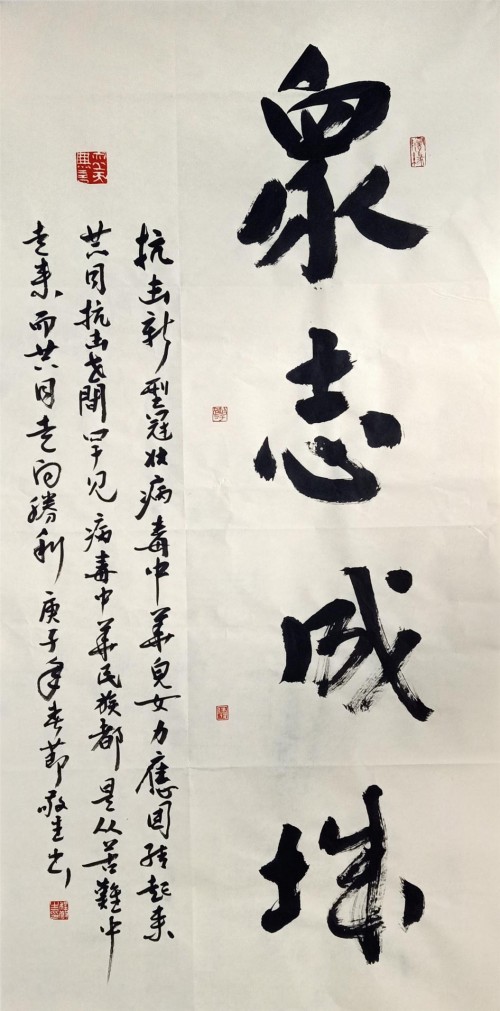 眾志成城
抗击新型冠状病毒中華兒女力應团结起来
共同抗击世間罕见病毒中華民族都是从苦難中
走来而共同走向勝利 庚子年春節敬生书